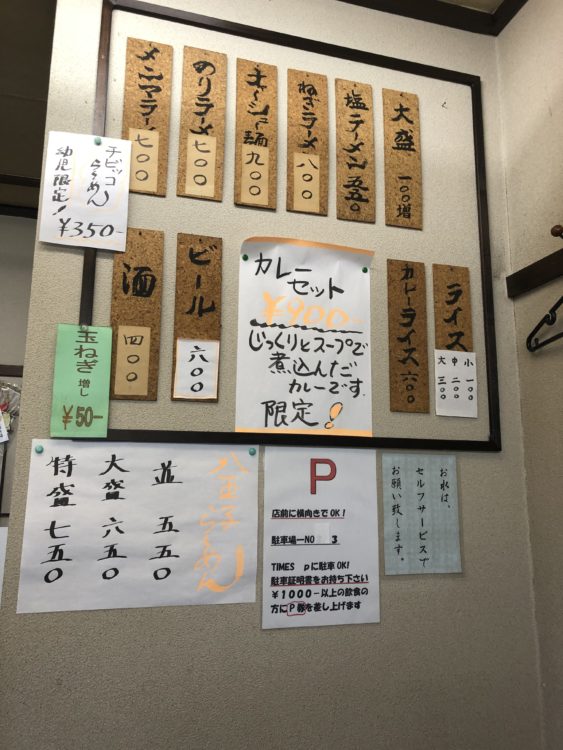 大盛 一〇〇増
塩ラーメン 五五〇
ねぎラーメン 八〇〇
チャーシュー麺 九〇〇
のりラーメン 七〇〇
メンマラーメン 七〇〇
チビッコ
らぅめん
幼児限定!
¥350-
ライス
小 一〇〇
中 二〇〇
大 三〇〇
カレーライス 六〇〇
カレー
セット
¥900-
じっくりとスープで
煮込んだ
カレーです
限定!
ビール 六〇〇
酒 四〇〇
玉ねぎ増し
¥50-
八王子らぅめん
並 五五〇
大盛 六五〇
特盛 七五〇
P
店前に横向きでOK!
駐車場ーNO 3
TIMES pに駐車OK!
駐車証明書をお持ち下さい
¥1000-以上の飲食の
方にP券を差し上げます
お水は、
セルフサービスで
お願い致します。